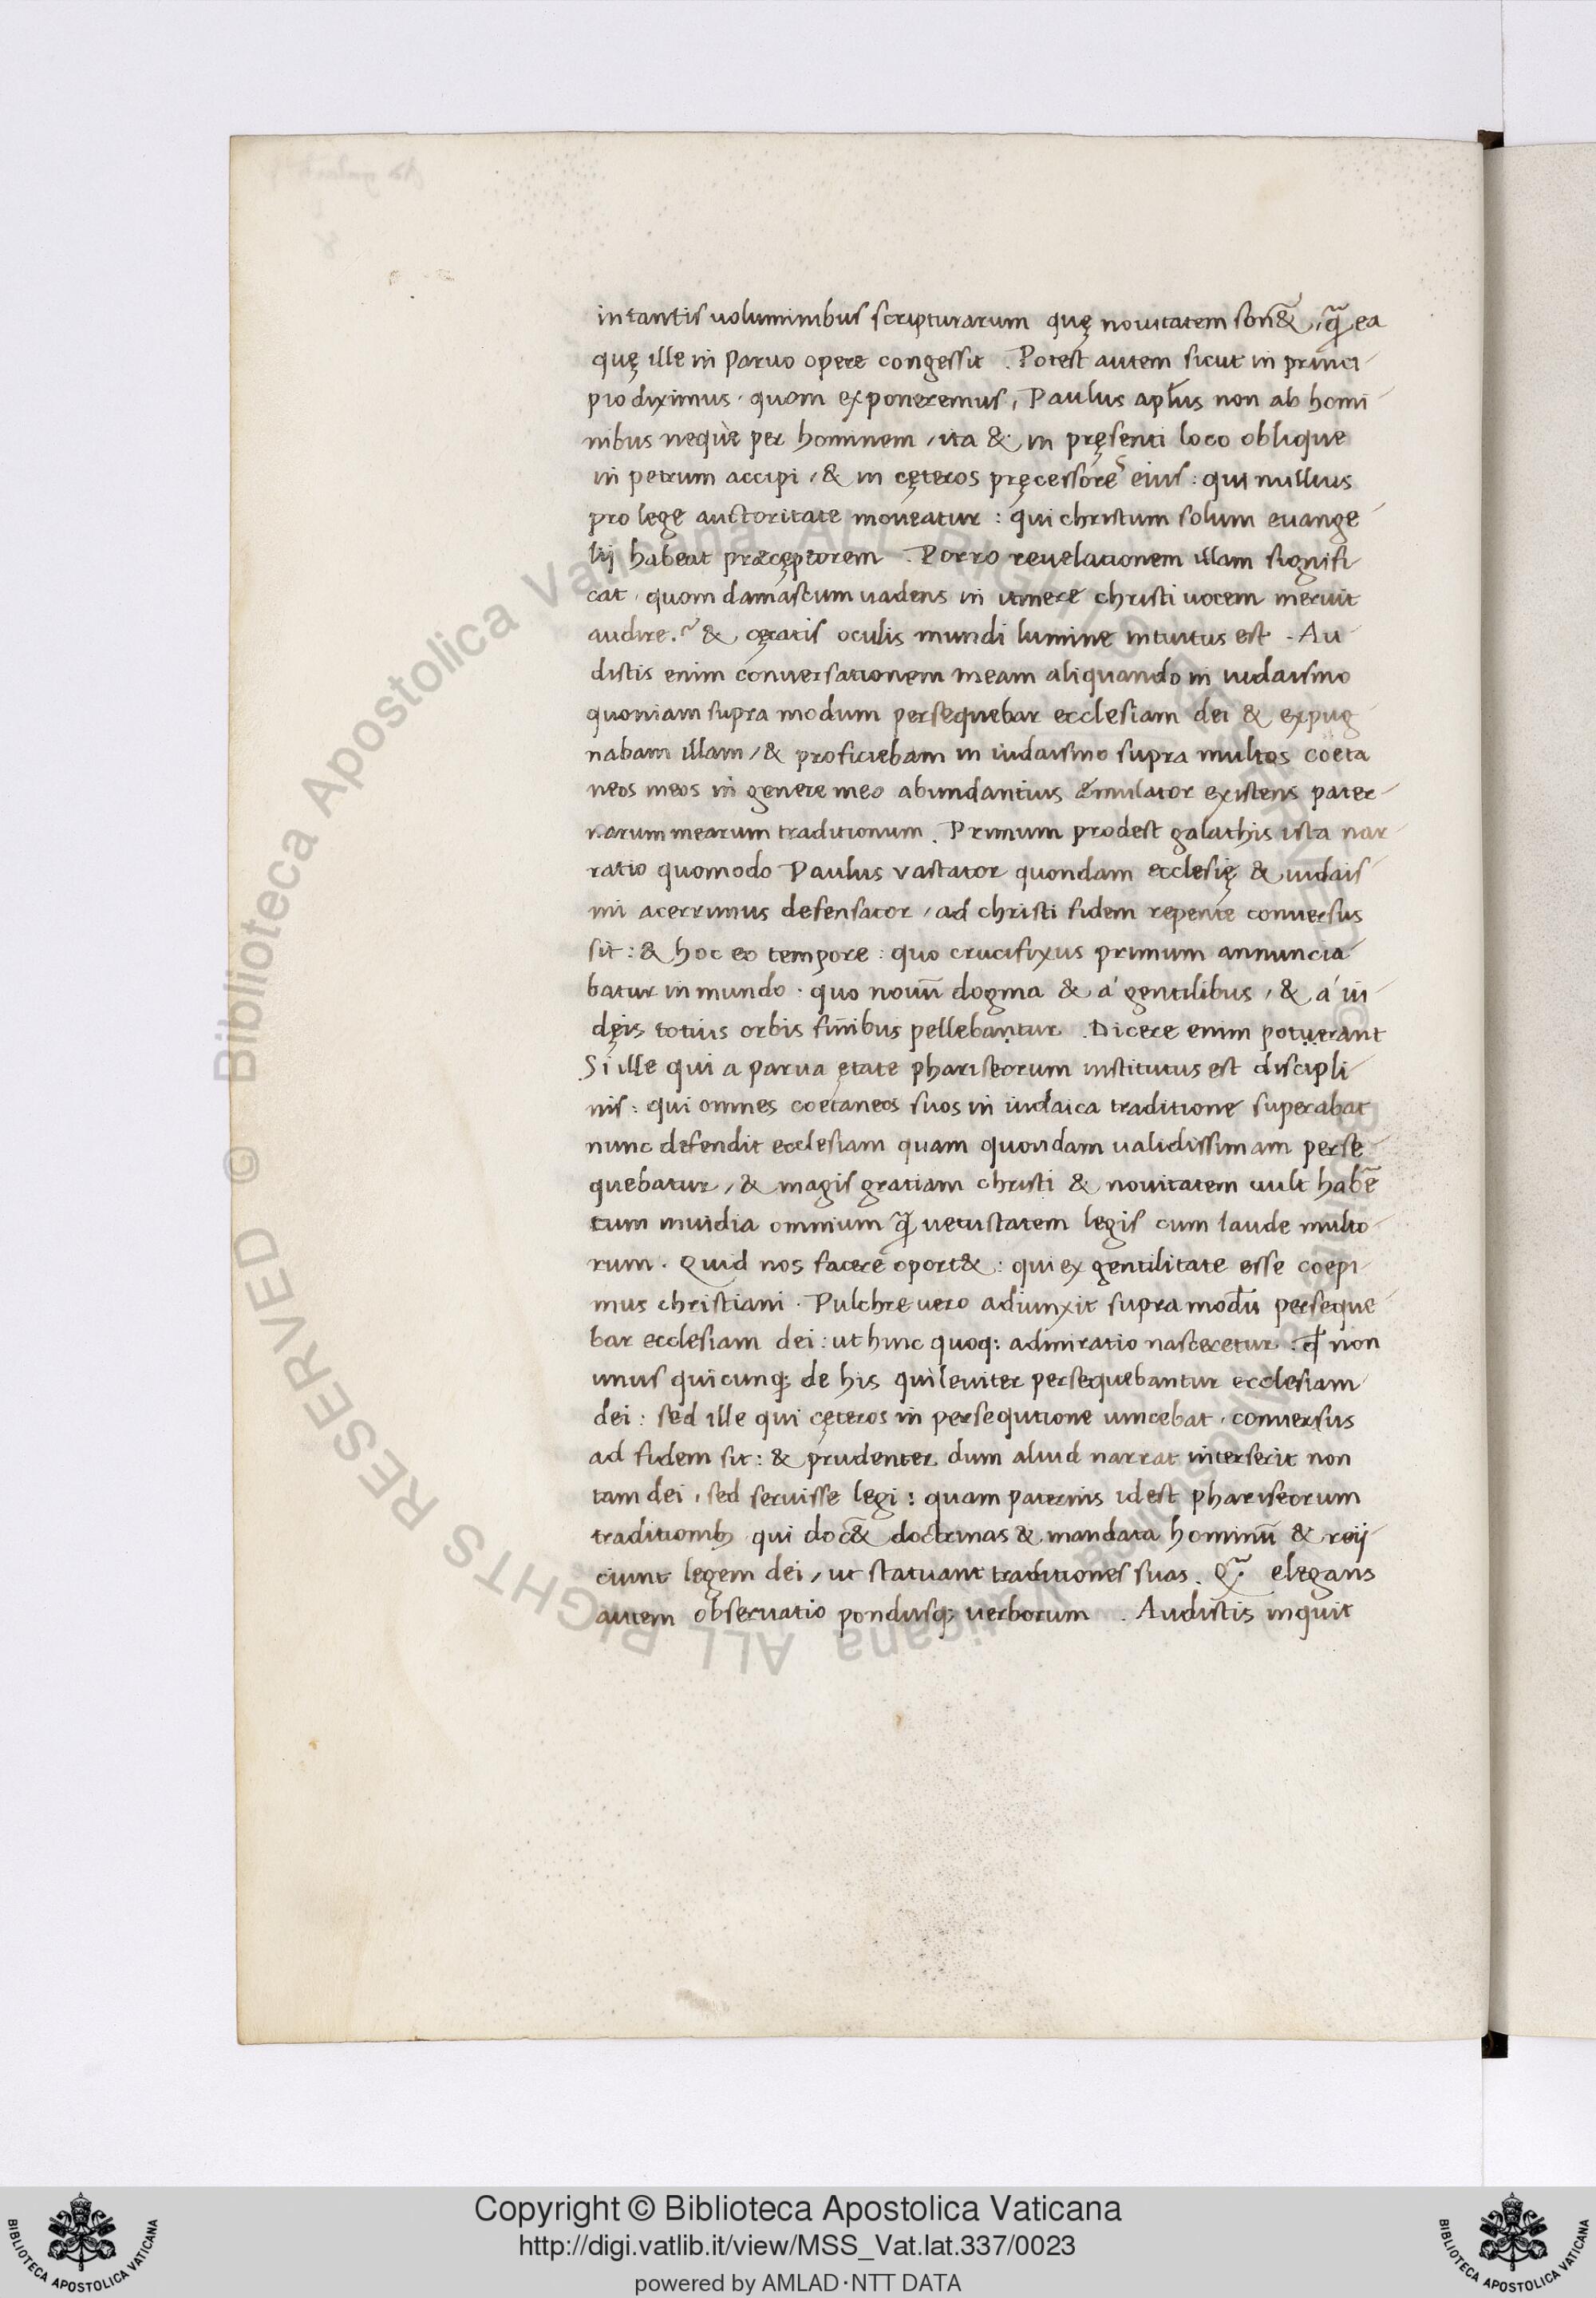 in tantis uoluminibus scripturarum quę nouitatem son̄&, q̃ ea
quę ille in paruo opere congessit. Potest autem sicut in princi-
pio diximus, quom exponeremus, Paulus apl̄us non ab homi-
nibus neque per hominem, ita & in pręsenti loco oblique
in petrum accipi, & in cęteros pręcessores eius: qui nullius
pro lege auctoritate moueatur: qui christum solum euange-
lij habeat præcęptorem. Porro reuelationem illam signifi-
cat, quom damascum uadens in itinere christi uocem meruit
audire. & cęcatis oculis mundi lumine intuitus est. Au-
distis enim conuersationem meam aliquando in iudaismo
quoniam supra modum persequebar ecclesiam dei & expug-
nabam illam, & proficiebam in iudaismo supra multos coeta
neos meos in genere meo abundantius æmulator existens pater-
narum mearum traditionum. Primum prodest galathis ista nar-
ratio quomodo Paulus vastator quondam ecclesię & iudais-
mi acerrimus defensator, ad christi fidem repente conuersus
sit: & hoc eo tempore: quo crucifixus primum annuncia-
batur in mundo. quo nouū dogma & á gentilibus, & á iu-
dęis totius orbis finibus pellebaṇtur. Dicere enim potuerant
Si ille qui a parua ętate phariseorum institutus est discipli-
nis: qui omnes coetaneos suos in iudaica traditione superabat
nunc defendit ecclesiam quam quondam ualidissimam perse-
quebatur, & magis gratiam christi & nouitatem uult habē
cum inuidia omnium q̃ uetustatem legis cum laude multo-
rum. Quid nos facere oport&: qui ex gentilitate esse coepi-
mus christiani. Pulchre uero adiunxit supra modū perseque-
bar ecclesiam dei: ut hinc quoq; admiratio nasceretur: ꝙ non
unus quicunq; de his qui leuiter persequebantur ecclesiam
dei: sed ille qui cęteros in persequtione uincebat, conuersus
ad fidem sit: & prudenter dum aliud narrat interserit non
tam dei, sed seruisse legi: quam paternis idest phariseorum
traditionib; qui doc̄& doctrinas & mandata hominū & reij-
ciunt legem dei, ut statuant traditiones suas. elegans
autem obseruatio pondusq; uerborum. Audistis inquit
© Biblioteca Apostolica Vaticana ALL RIGHTS RESERVED
Copyright © Biblioteca Apostolica Vaticana
http://digi.vatlib.it/view/MSS_Vat.lat.337/0023
powered by AMLAD·NTT DATA
BIBLIOTECA APOSTOLICA VATICANA
BIBLIOTECA APOSTOLICA VATICANA